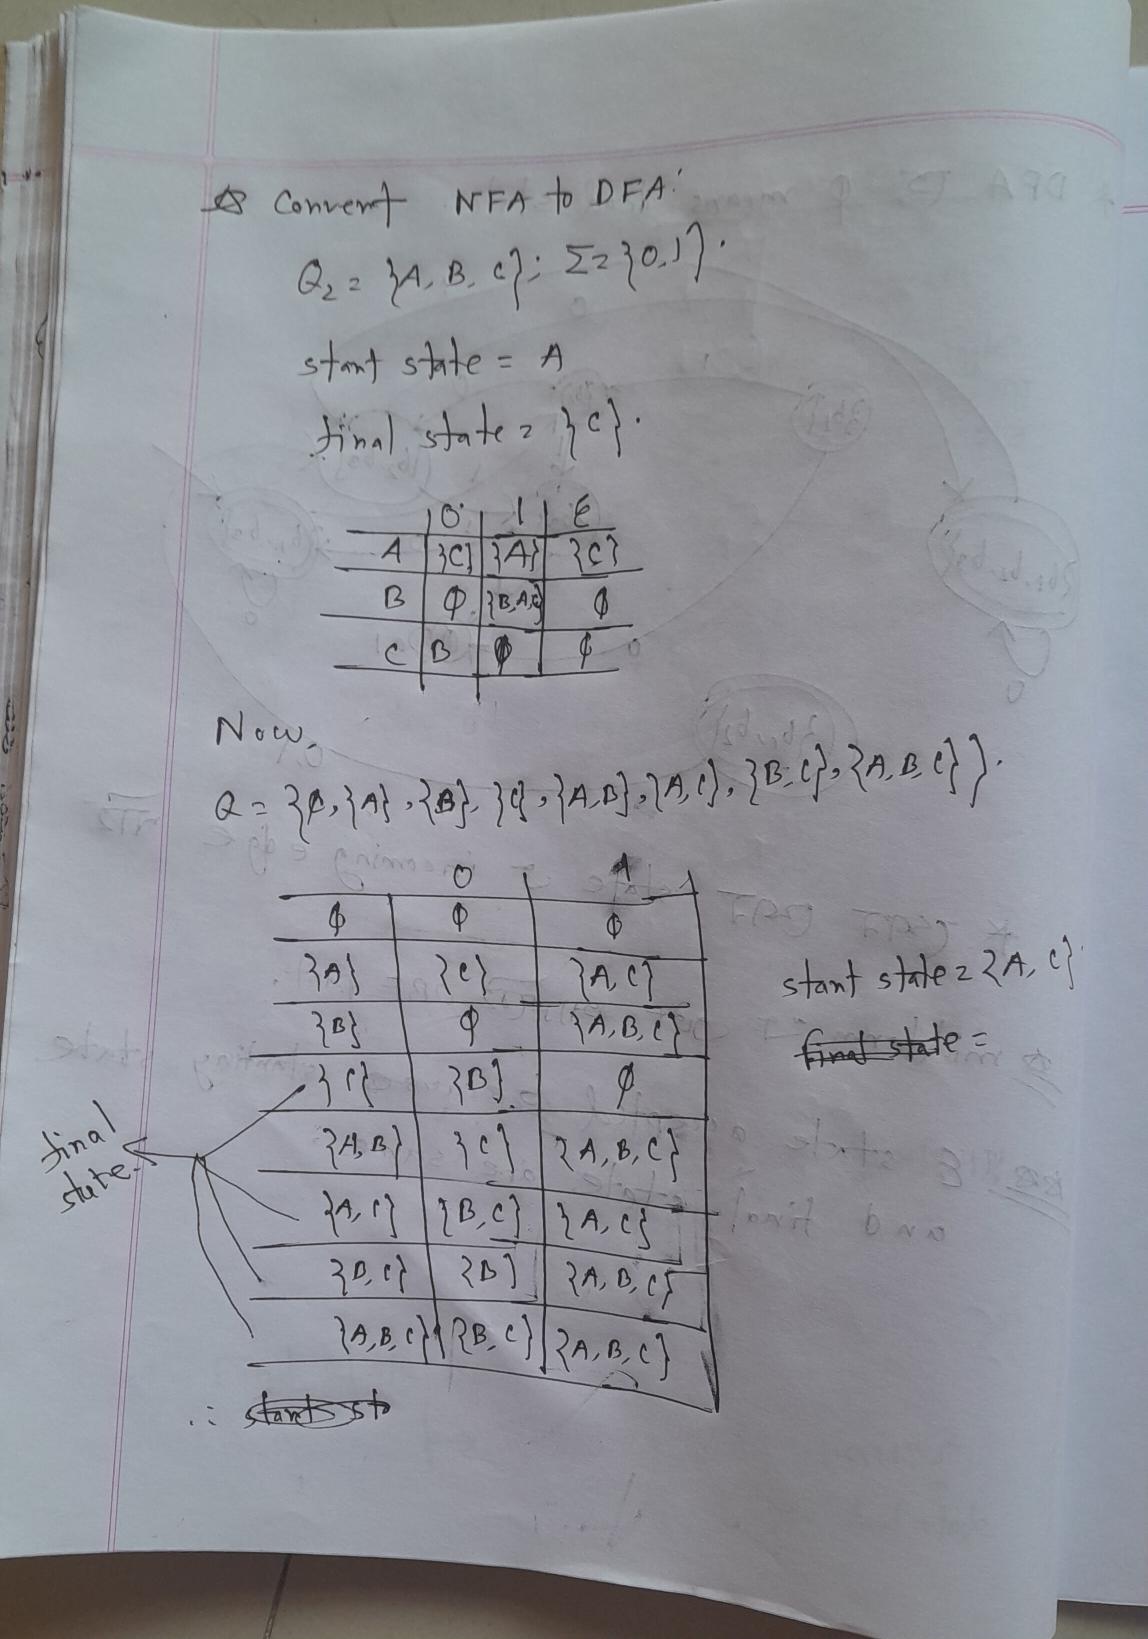 Convert NFA to DFA:
Q = {A, B, C}; Σ = {0,1}.
start state = A
final state = {C}.
0 1 ε
A {C} {A} {C}
B φ {B,A,C} φ
C B φ φ
Now,
Q = {φ, {A}, {B}, {C}, {A,B}, {A,C}, {B,C}, {A,B,C}}.
0 1
φ φ φ
{A} {C} {A,C}
{B} φ {A,B,C}
{C} {B} φ
{A,B} {C} {A,B,C}
{A,C} {B,C} {A,C}
{B,C} {B} {A,B,C}
{A,B,C} {B,C} {A,B,C}
start state = {A, C}
final state =
final
state
∴ start st